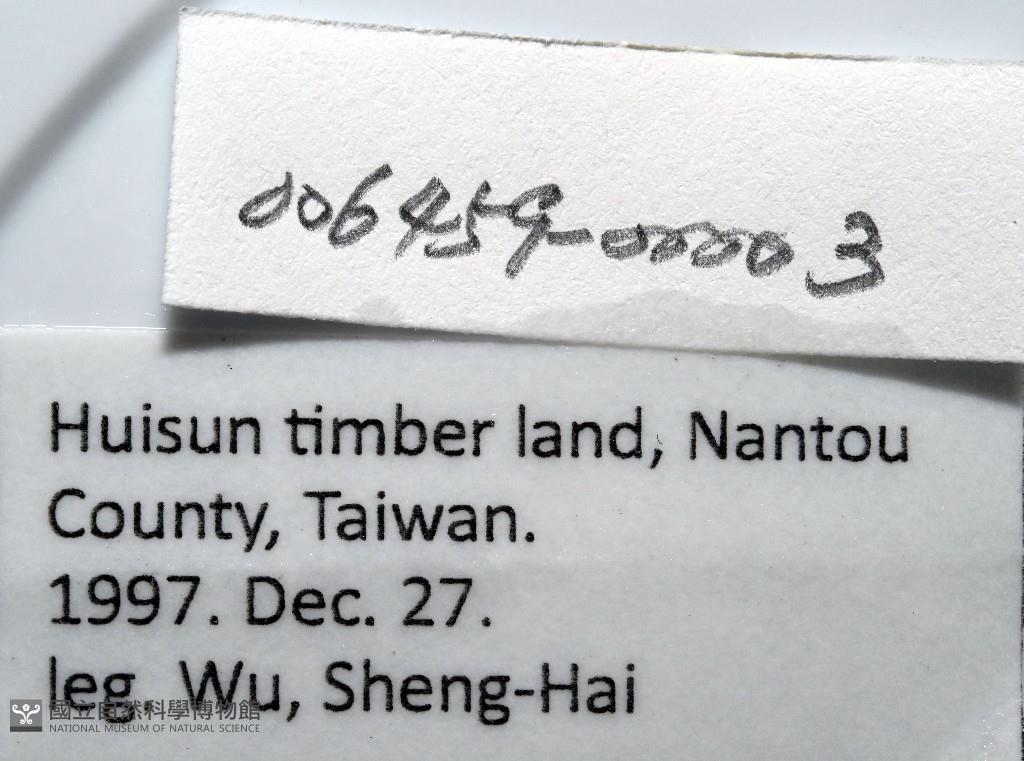 006459-00003
Huisun timber land, Nantou
County, Taiwan.
1997. Dec. 27.
leg. Wu, Sheng-Hai
國立自然科學博物館
NATIONAL MUSEUM OF NATURAL SCIENCE